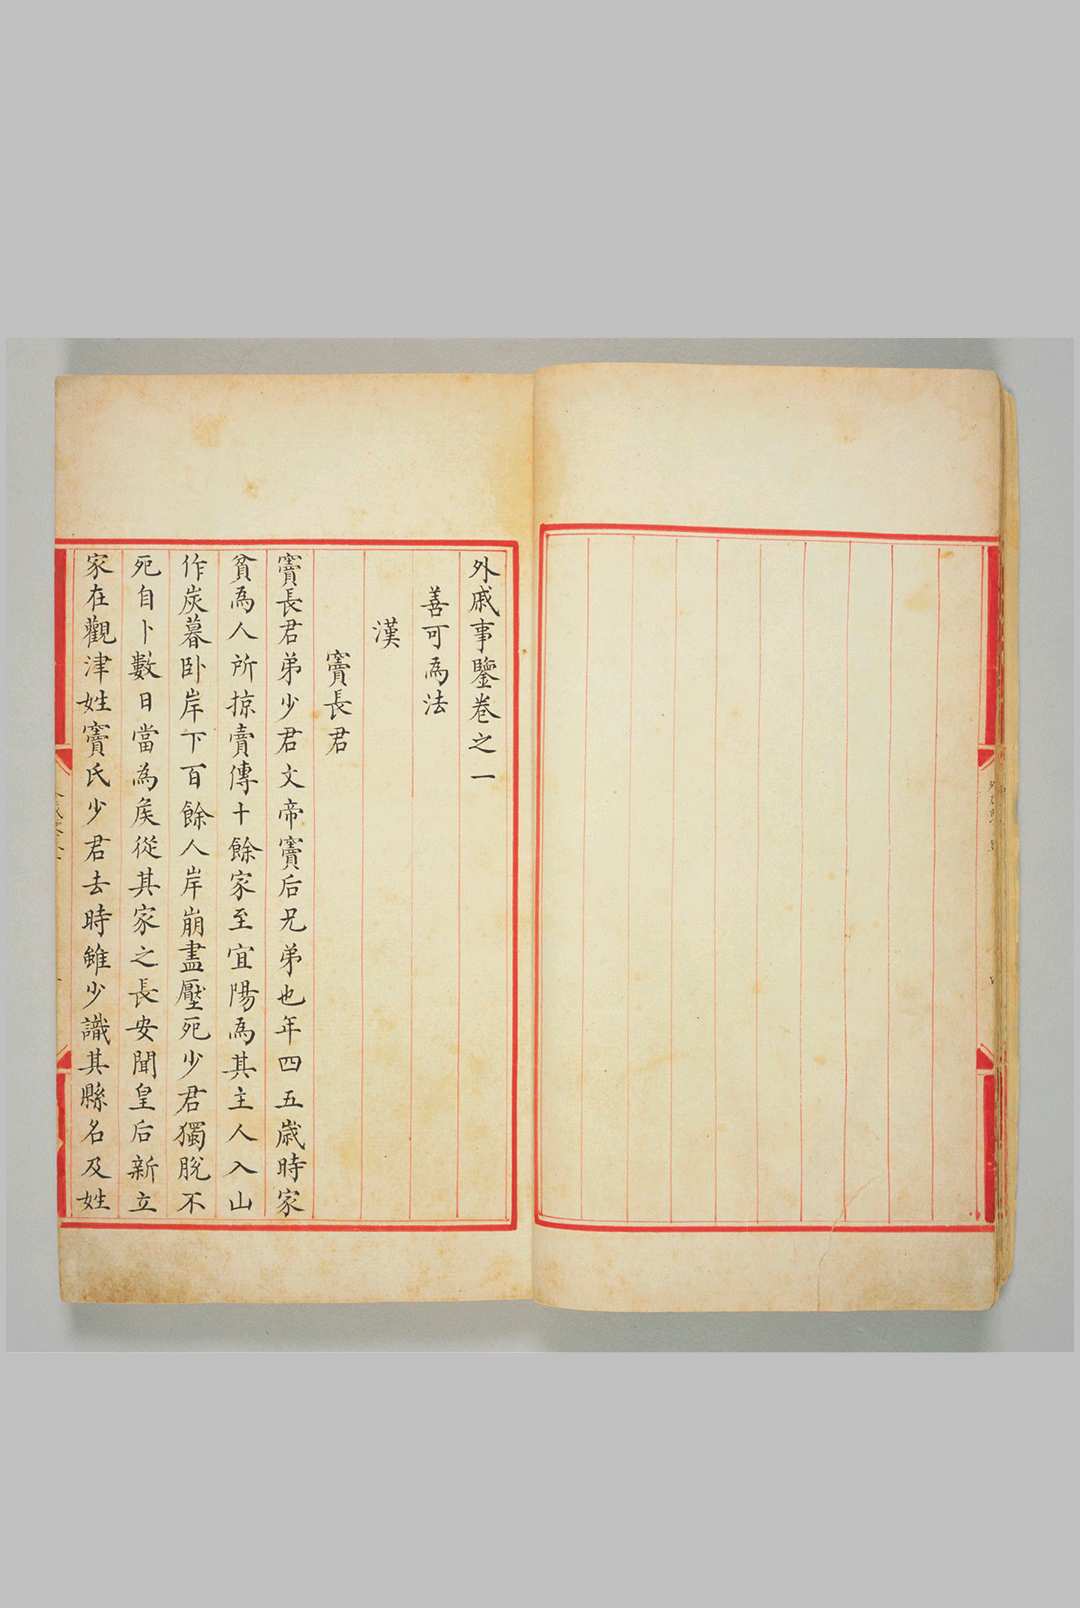 外戚事鑒卷之一
善可為法
漢
竇長君
竇長君弟少君文帝竇后兄弟也年四五歲時家
貧為人所掠賣傳十餘家至宜陽為其主人入山
作炭暮卧岸下百餘人岸崩盡壓死少君獨脫不
死自卜數日當為矦從其家之長安聞皇后新立
家在觀津姓竇氏少君去時雖少識其縣名及姓